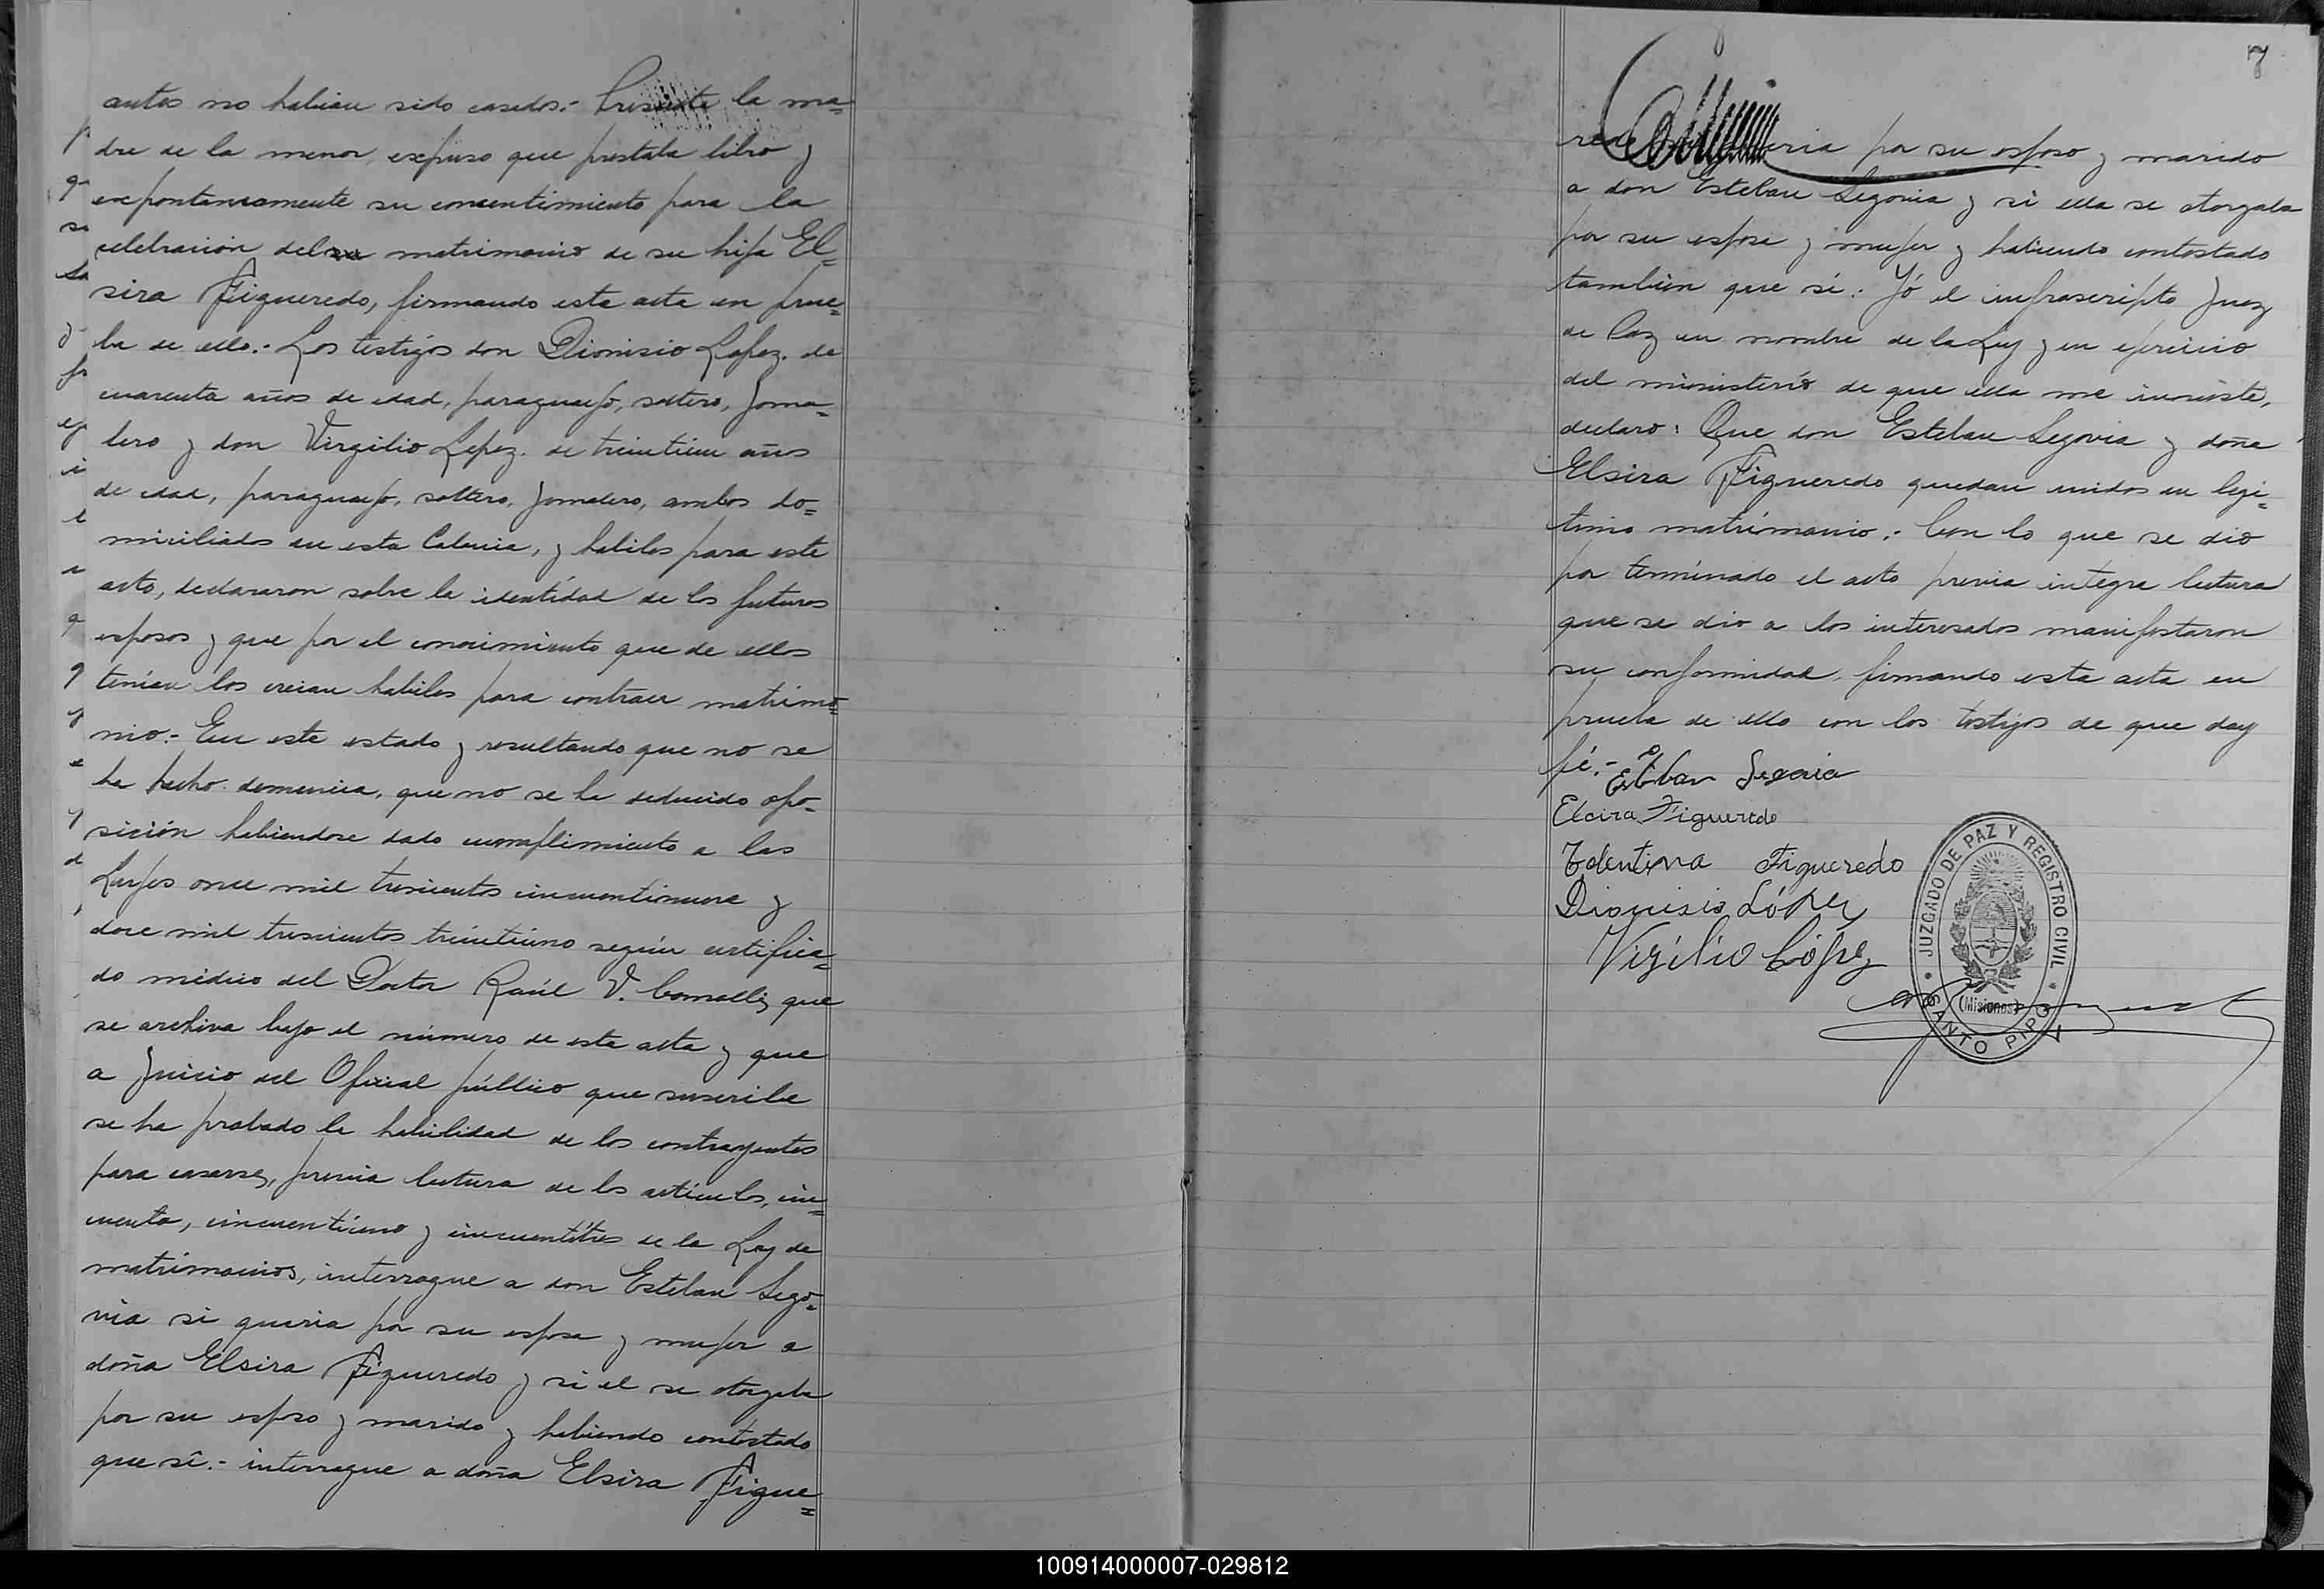 antes no habian sido casados.- Presente la ma=
dre de la menor, expuso que prestaba libre y
expontaneamente su consentimiento para la
celebración del matrimonio de su hija El=
sira Figueredo, firmando esta acta en prue=
ba de ello.- Los testigos don Dionisio Lopez. de
cuarenta años de edad, paraguayo, soltero, Jorna=
lero y don Virgilio Lopez. de treintiun años
de edad, paraguayo, soltero, Jornalero, ambos do=
miciliados en esta Colonia, y habiles para este
acto, declararon sobre la identidad de los futuros
esposos y que por el conocimiento que de ellos
tenían los creian habiles para contraer matrimo=
nio.- En este estado y resultando que no se
ha hecho denuncia, que no se ha deducido opo=
sición habiendose dado cumplimiento a las
Leyes once mil trescientos cincuentinueve y
doce mil trescientos treintiuno según certifica=
do médico del Doctor Raúl V. que
se archiva bajo el número de esta acta y que
a Juicio del Oficial público que suscribe
se ha probado la habilidad de los contrayentes
para casarse, previa lectura de los artículos, cin=
cuenta, cincuentiuno y cincuentitres de la Ley de
matrimonios, interrogue a don Esteban Sego=
via si queria por su esposa y mujer a
doña Elsira Figueredo y si el se otorgaba
por su esposo y marido y habiendo contestado
que sí.- interrogue a doña Elsira Figue=
7
por su esposo y marido
a don Esteban Segovia y si ella se otorgaba
por su esposa y mujer y habiendo contestado
tambien que sí: Yó el infrascripto Juez
de Paz en nombre de la Ley y en ejercicio
del ministerio de que ella me inviste,
declaro: Que don Esteban Segovia y doña
Elsira Figueredo quedan unidos en legi=
timo matrimonio.- Con lo que se dió
por terminado el acto previa integra lectura
que se dio a los interesados manifestaron
su conformidad firmando esta acta en
prueba de ello con los testigos de que doy
fé.- Esteban Segovia
Elcira Figueredo
Figueredo
Dionisio López
Virgilio López
JUZGADO DE PAZ Y REGISTRO CIVIL
(Misiones)
SANTO PIPO
100914000007-029812